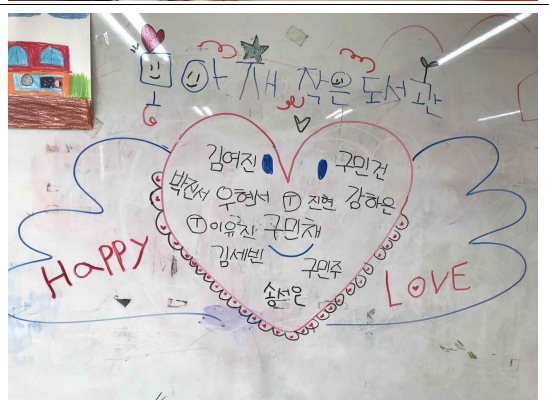 몽아재 작은 도서관
김여진 구민건
박진서 우현서 Ⓣ 진현 강하은
Ⓣ 이유진 구민채
김세빈 구민주
송서은
HAPPY
LOVE